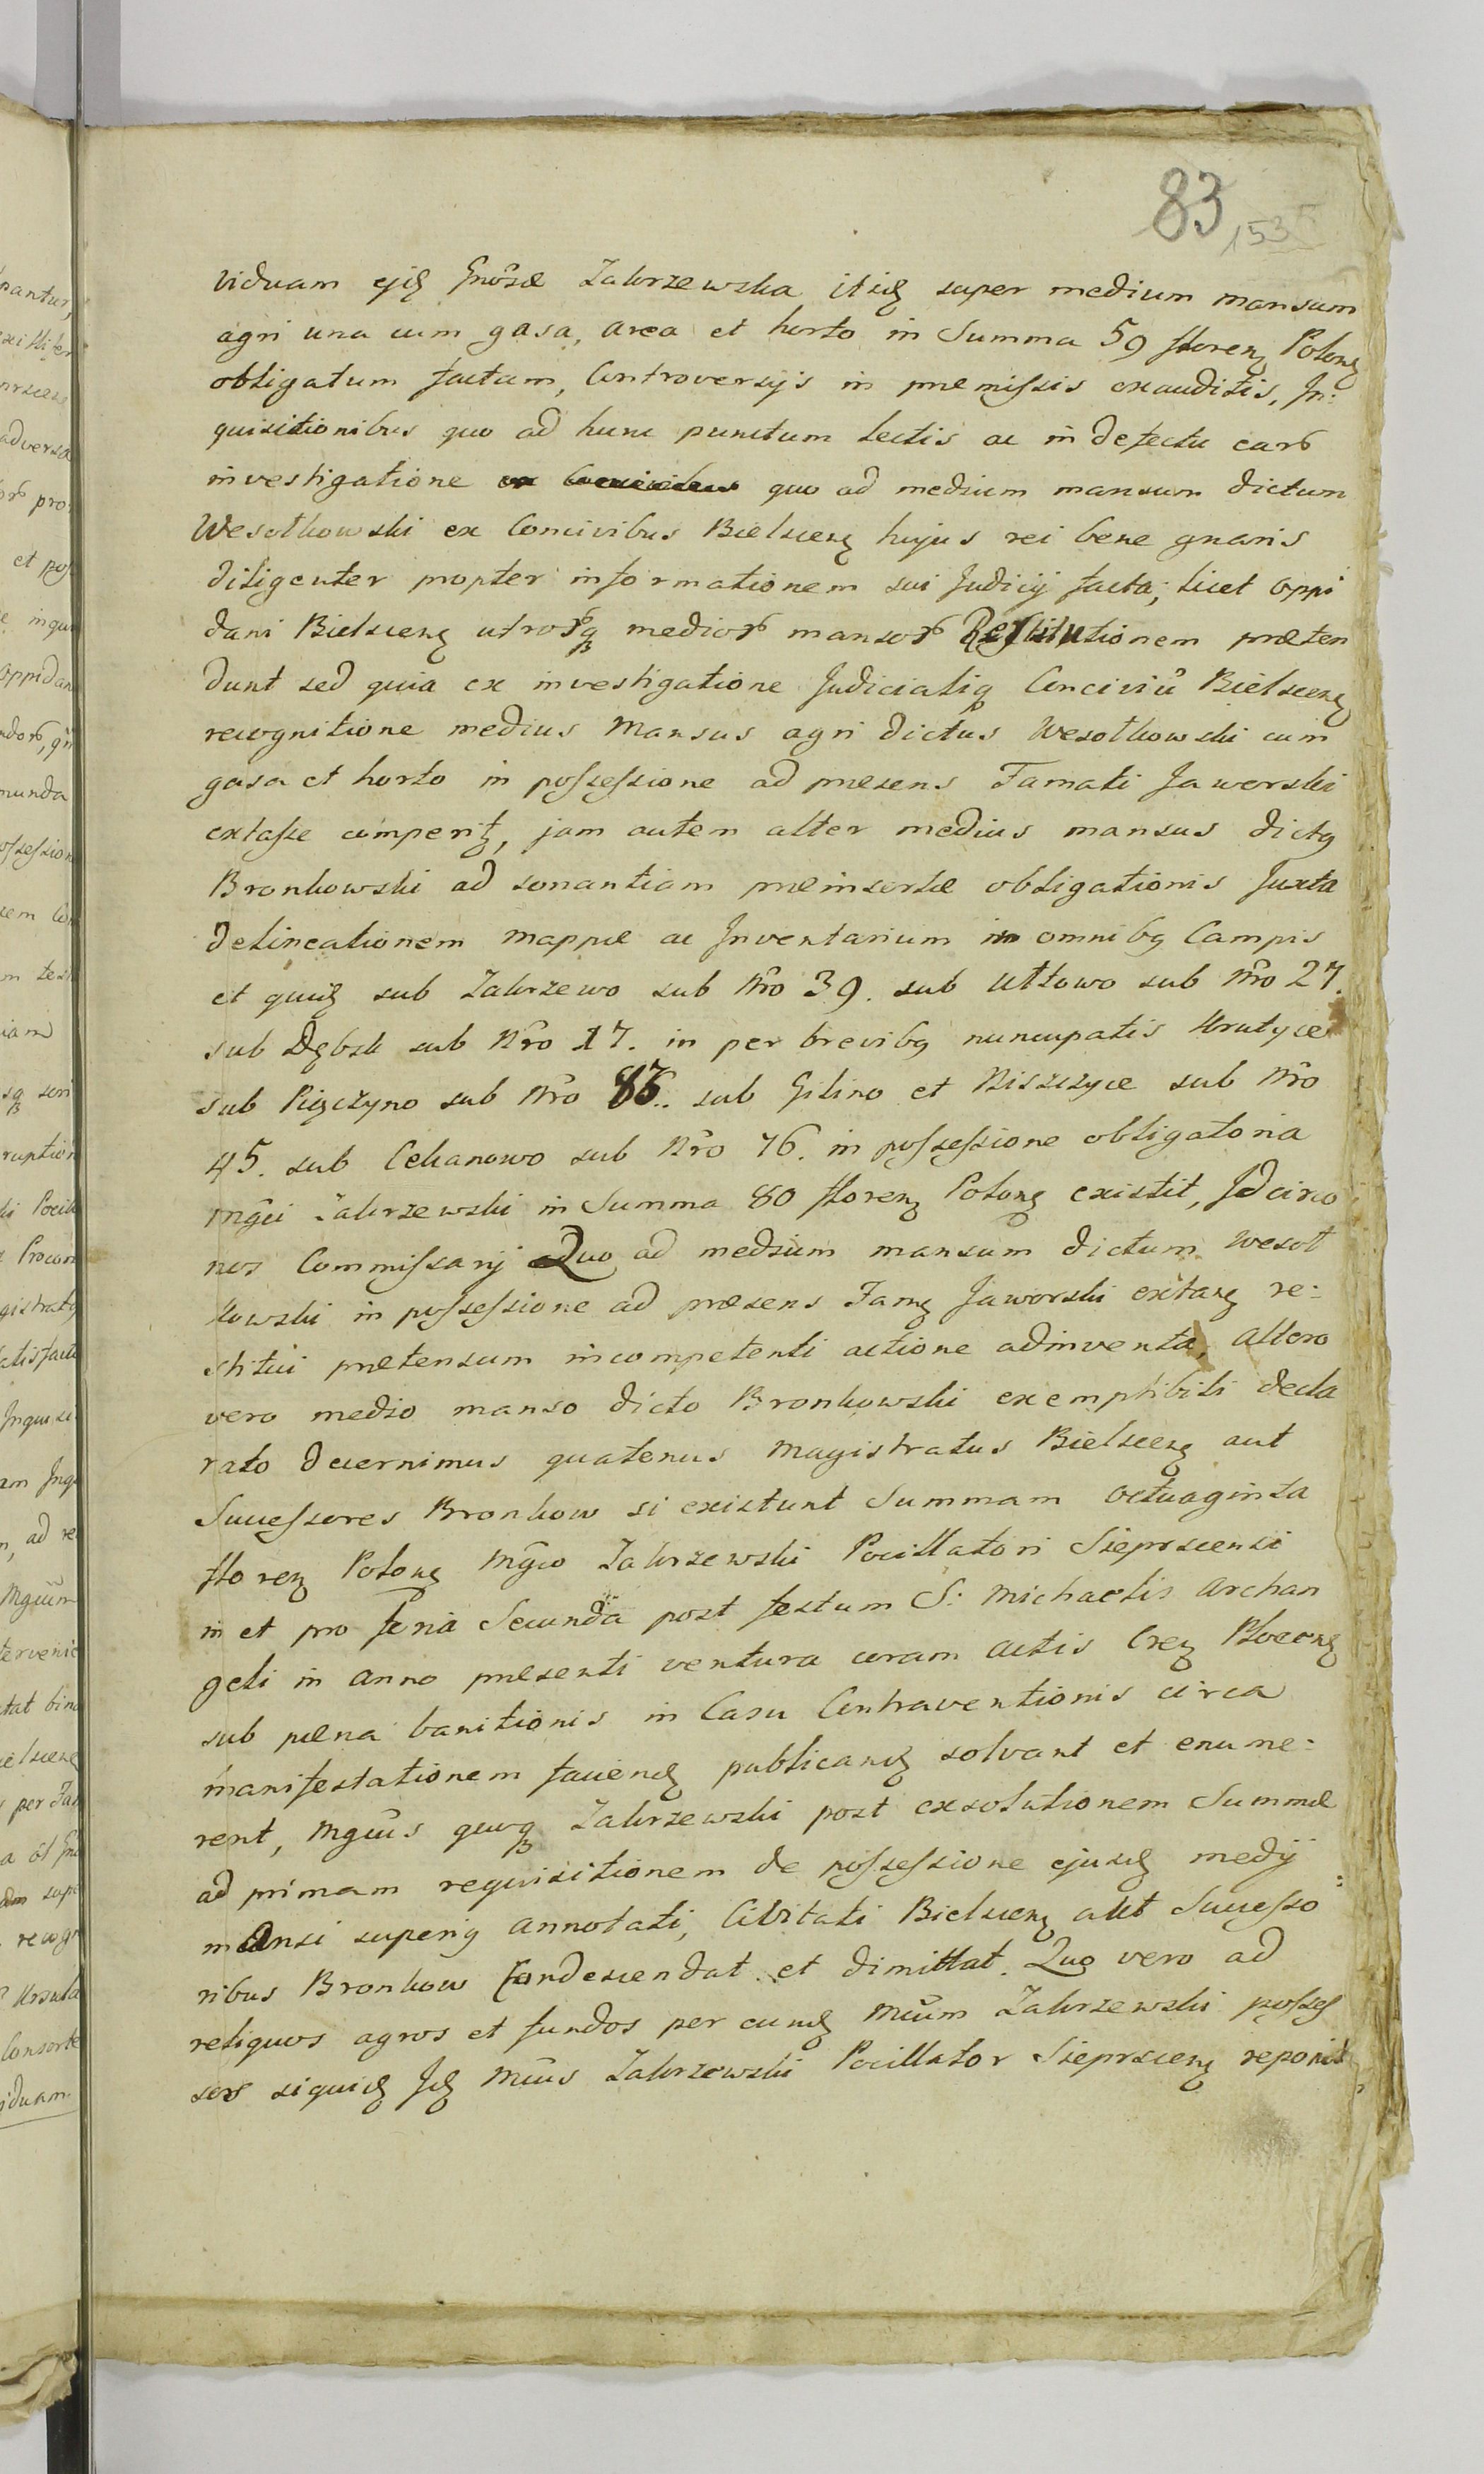 83
1535
viduam ejq Gnosæ Zakrzewska itiq super medium mansum
agri una cum gasa, area et horto in Summa 59 floreng Polong
obligatum factam, Controversijs in præmissis exauditis, In:
quisitionibus quo ad hunc punctum lectis ac in defectu earb
investigatione quo ad medium mansum dictum
Wesołkowski ex Concivibus Bielsceng hujus rei bene gnaris
diligenter propter informationem sui Judicij facta; licet oppi
dani Bielsceng utrorqq mediorb mansorb Restitutionem præten
dunt sed quia ex investigatione Judicialiq Conciviũ Bielsceng
recognitione medius Mansus agri dictus Wesołkowski cum
gasa et horto in possessione ad præsens Famati Jaworski
extasse comperitq, jam autem alter medius mansus dictq
Bronkowski ad sonantiam præinsertæ obligationis Juxta
delineationem mappæ ac Inventarium in omnibq Campis
et quiq sub Zakrzewo sub Nro 39. sub Utłowo sub Nro 27.
sub Dębsk sub Nro 17. in per brevibq nuncupatis Krutyce
sub Pięczyno sub Nro 86.. sub Gilino et Niszczyce sub Nro
45. sub Cekanowo sub Nro 76. in possessione obligatoria
Mgci Zakrzewski in Summa 80 floreng Polong existit, Idcirco
nos Commissarij Quo ad medium mansum dictum Wesoł
kowski in possessione ad præsens Famq Jaworski extanq re:
stitui prætensum incompetenti actione adinventa, altero
vero medio manso dicto Bronkowski exemptibili decla
rato decernimus quatenus Magistratus Bielsceng aut
Successores Bronkow si existunt Summam octuaginta
floreng Polong Mgco Zakrzewski Pocillatori Sieprscensi
in et pro feria Secunda post festum S: Michaelis Archan
geli in anno præsenti ventura coram actis Creng Płoceng
sub pæna banitionis in Casu Contraventionis circa
manifestationem facienq publicanq solvant et enume:
rent, Mgcus quoqq Zakrzewski post exsolutionem Summæ
ad primam requisitionem de possessione ejusq medij
mansi superiq annotati, Civitati Bielsceng aut Successo:
ribus Bronkow condescendat et dimittat. Quo vero ad
reliquos agros et fundos per eunq Mcum Zakrzewski posses
sos siquiq Iq Mcus Zakrzewski Pocillator Sieprsceng reponit